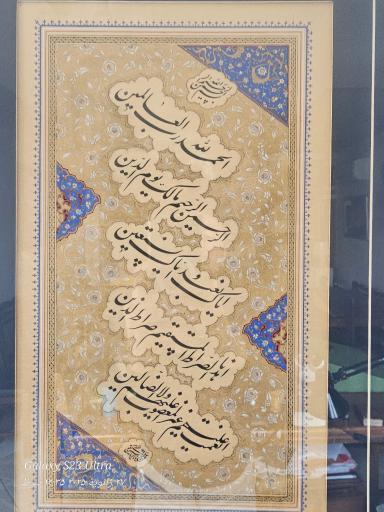 بسم الله الرحمن الرحیم
الحمد لله رب العالمین
الرحمن الرحیم مالک یوم الدین
ایاک نعبد و ایاک نستعین
اهدنا الصراط المستقیم صراط الذین
انعمت علیهم غیر المغضوب علیهم ولا الضالین
Galaxy S23 Ultra